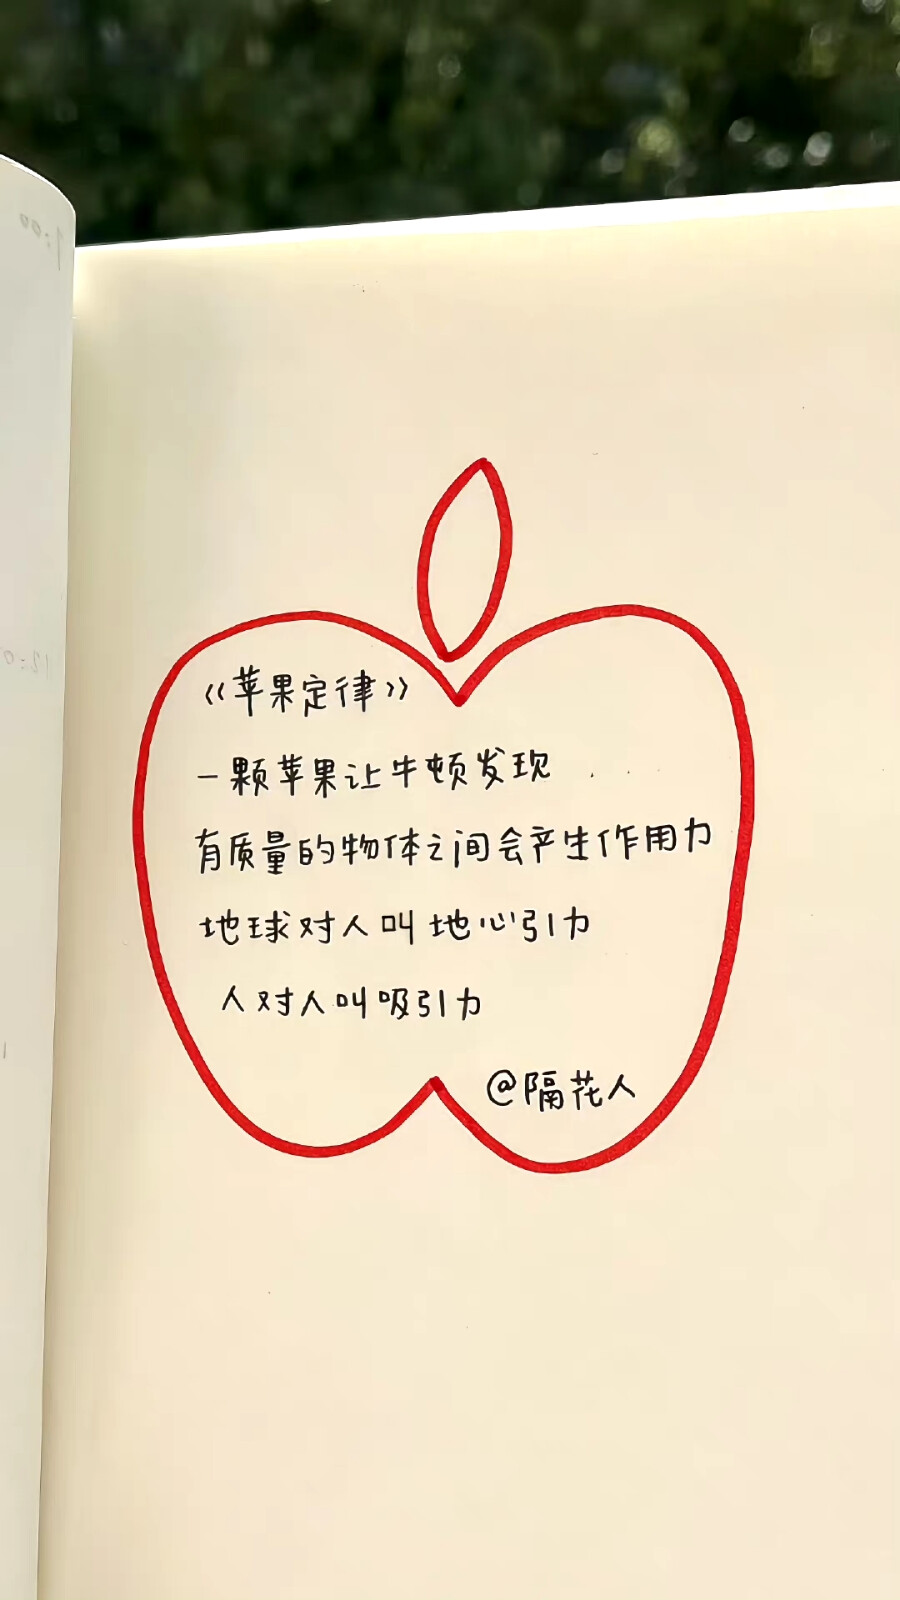 《苹果定律》
一颗苹果让牛顿发现
有质量的物体之间会产生作用力
地球对人叫地心引力
人对人叫吸引力
@隔花人